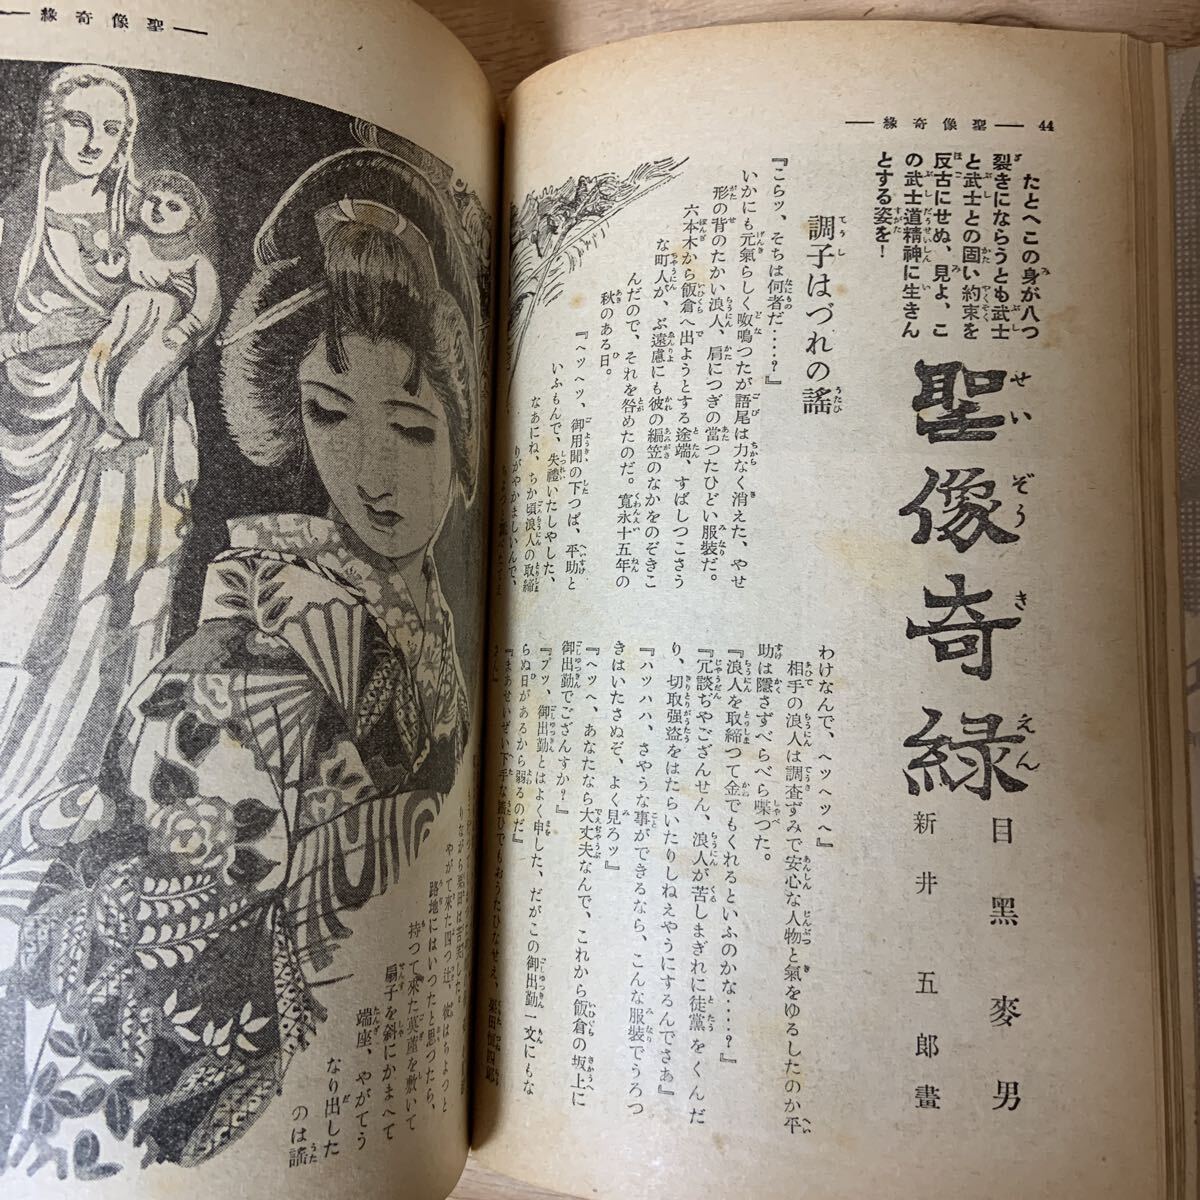 44
―聖像奇縁―
たとへこの身が八つ
裂きにならうとも武士
と武士との固い約束を
反古にせぬ、見よ、こ
の武士道精神に生きん
とする姿を！
聖像奇縁
せいぞうきえん
目黑麥男
新井五郎畫
調子はづれの謠
『こらッ、そちは何者だ‥‥？』
いかにも元氣らしく呶鳴つたが語尾は力なく消えた、やせ
形の背のたかい浪人、肩につぎの當つたひどい服裝だ。
六本木から飯倉へ出ようとする途端、すばしつこさう
な町人が、ぶ遠慮にも彼の編笠のなかをのぞきこ
んだので、それを咎めたのだ。寛永十五年の
秋のある日。
『ヘッヘッ、御用聞の下つぱ、平助と
いふもんで、失禮いたしやした、
なあにね、ちか頃浪人の取締
りがやかましいんで、
わけなんで、ヘッヘッヘ』
相手の浪人は調査ずみで安心な人物と氣をゆるしたのか平
助は隱さずべらべら喋つた。
『浪人を取締つて金でもくれるといふのかな‥‥？』
『冗談ぢやございません、浪人が苦しまぎれに徒黨をくんだ
り、切取强盜をはたらいたりしねえやうにするんでさぁ』
『ハッハハ、さやうな事ができるなら、こんな服裝でうろつ
きはいたさぬぞ、よく見ろッ』
『ヘッヘ、あなたなら大丈夫なんで、これから飯倉の坂上に
御出勤でござんすか？』
『プッ、御出勤とはよく申した、だがこの御出勤一文にもな
らぬ日があるから弱るのだ』
『まあせいぜい下手な謠ひでもおうたひなせえ、
さん』
―聖像奇縁―
りながら
やがて來た四つ辻、彼はちよつと
路地にはいつたと思つたら、
持つて來た茣蓙を敷いて
扇子を斜にかまへて
端座、やがてう
なり出した
のは謠